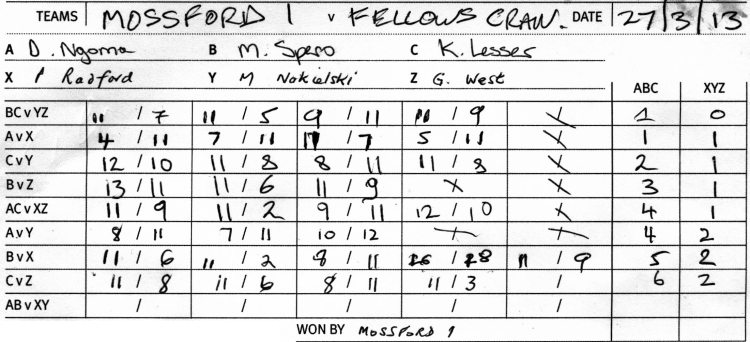 TEAMS MOSSFORD 1 v FELLOWS CRAN. DATE 27/3/13
A D. Ngoma B M. Spero C K. Lesser
X P Radford Y M Nakielski Z G. West ABC XYZ
BC v YZ 11 / 7 11 / 5 9 / 11 11 / 9 X 1 0
A v X 4 / 11 7 / 11 11 / 7 5 / 11 X 1 1
C v Y 12 / 10 11 / 8 8 / 11 11 / 8 X 2 1
B v Z 13 / 11 11 / 6 11 / 9 X X 3 1
AC v XZ 11 / 9 11 / 2 9 / 11 12 / 10 X 4 1
A v Y 8 / 11 7 / 11 10 / 12 X X 4 2
B v X 11 / 6 11 / 2 8 / 11 26 / 28 11 / 9 5 2
C v Z 11 / 8 11 / 6 8 / 11 11 / 3 / 6 2
AB v XY / / / / /
WON BY MOSSFORD 1